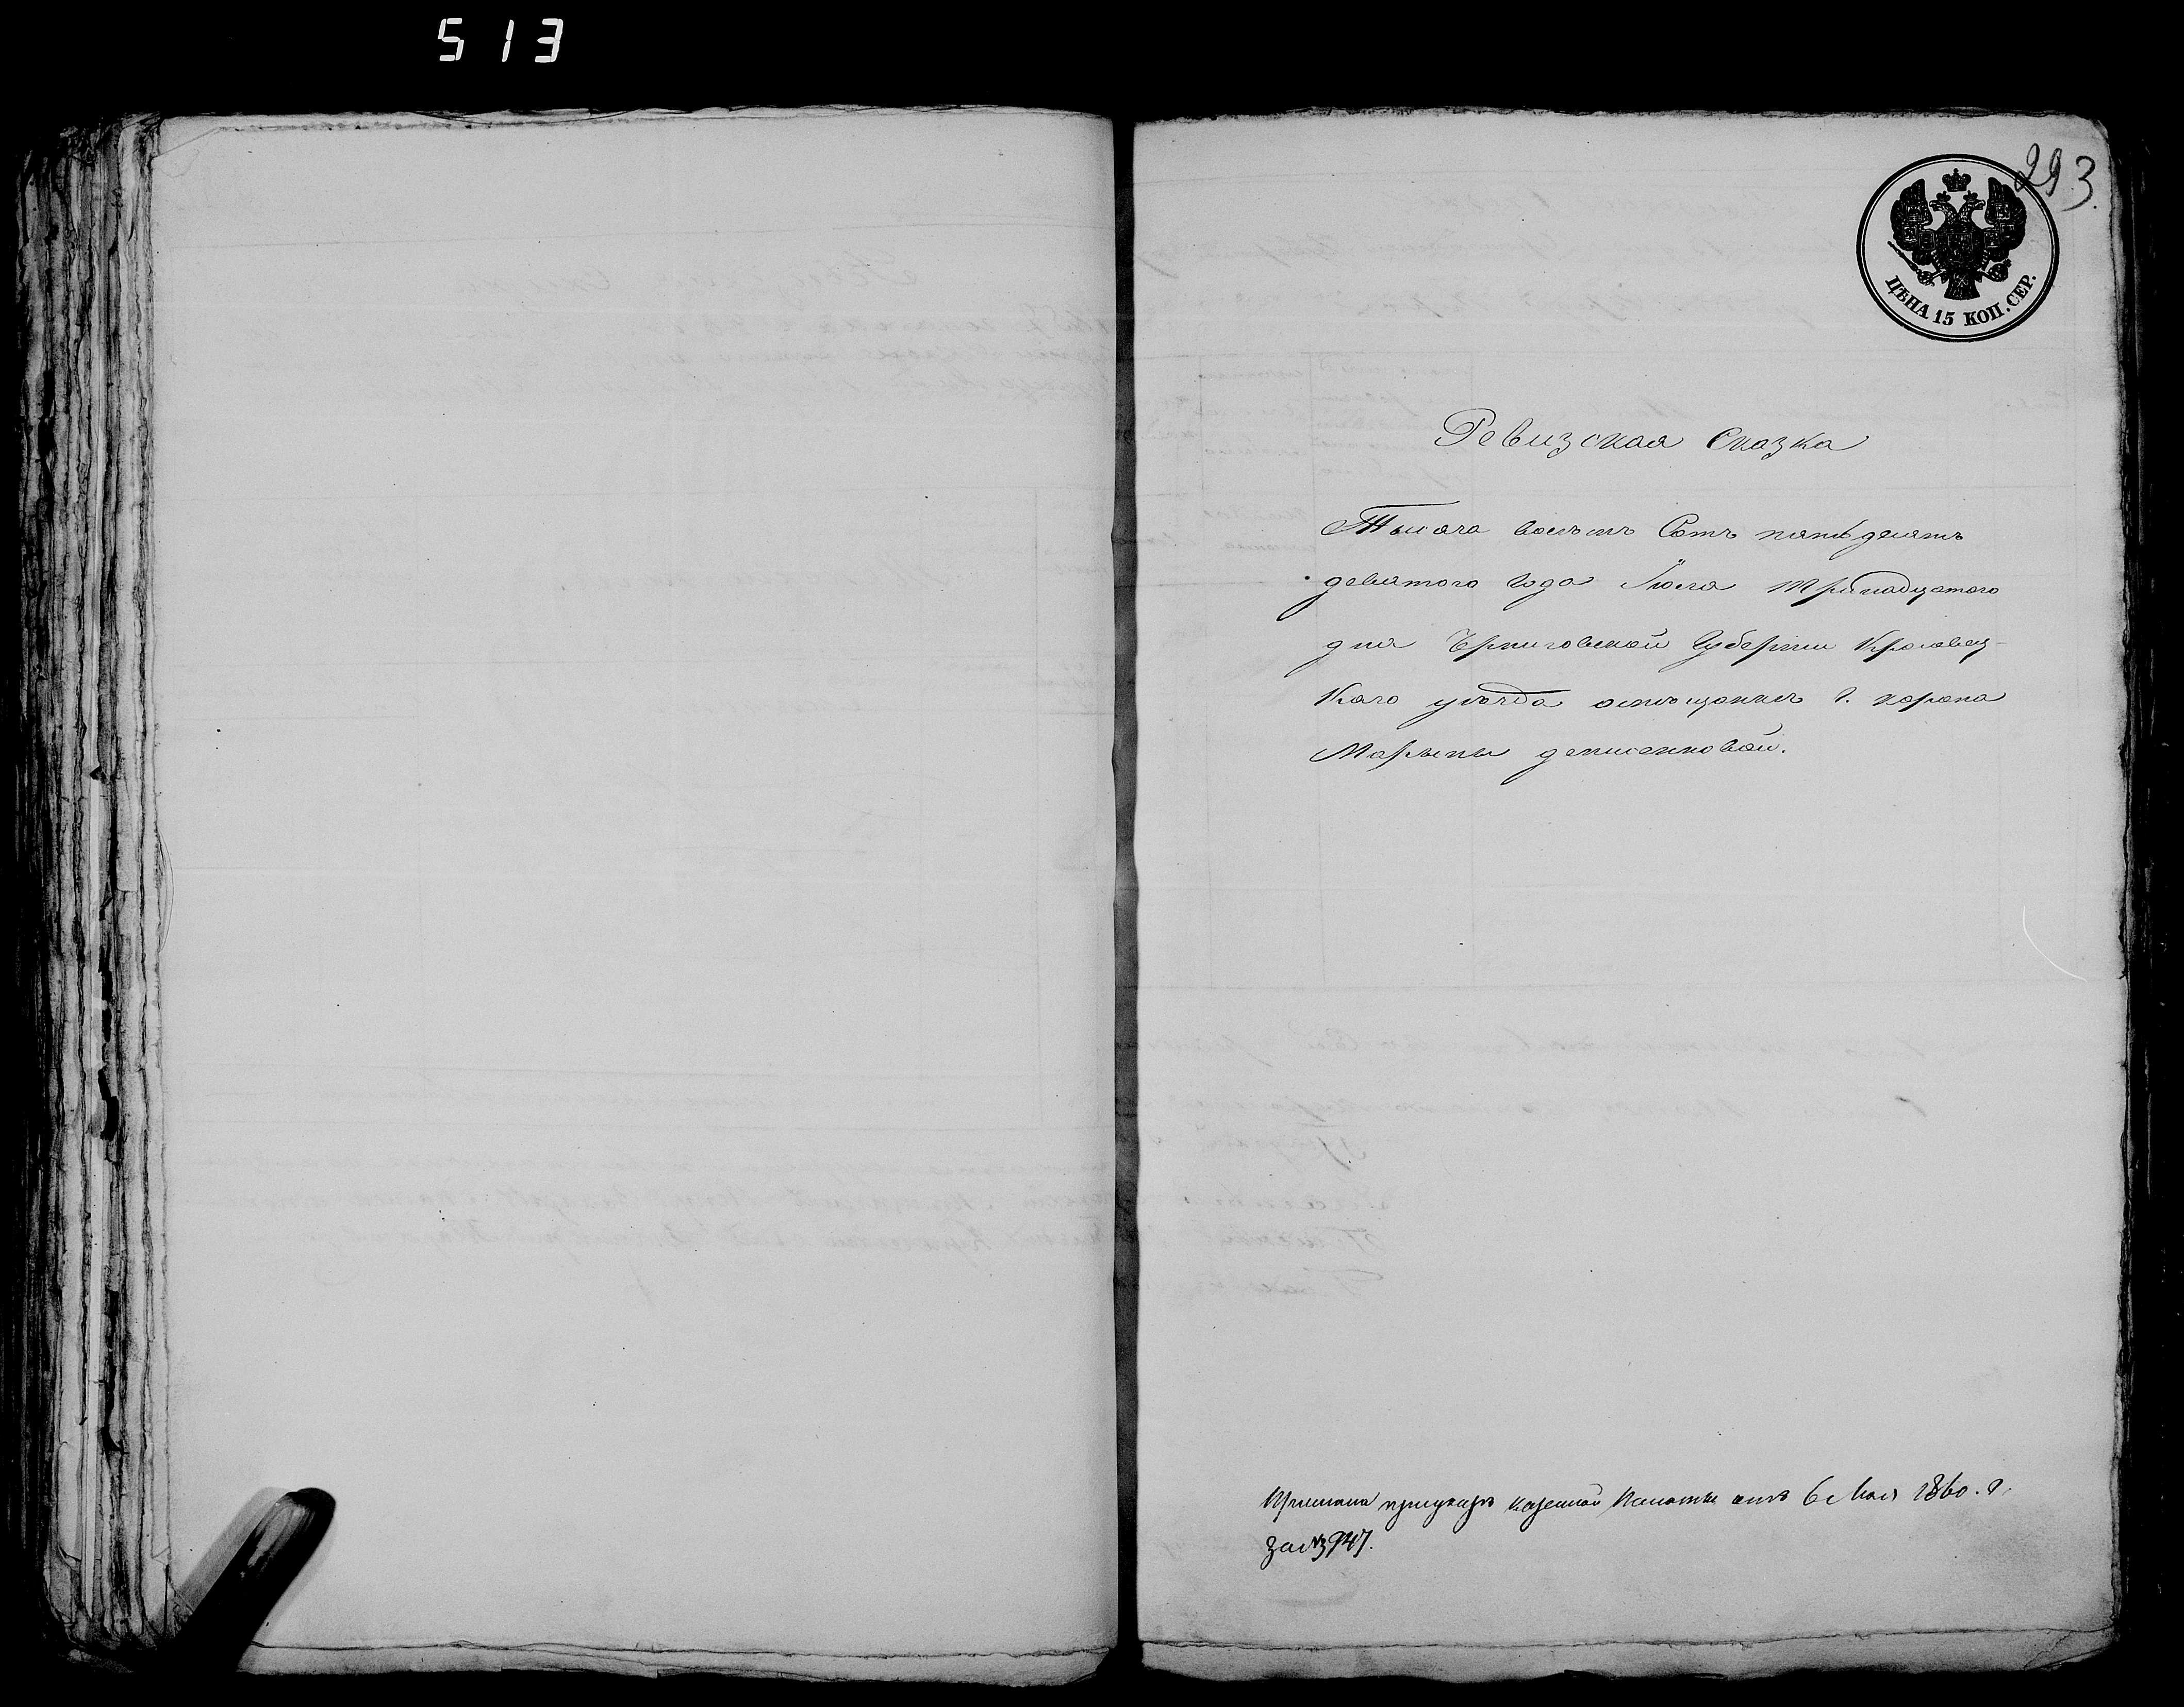 513
293.
ЦѢНА 15 КОП. СЕР.
Ревизская Сказка
Тысяча восемъ Сотъ пятьдесятъ
девятого года Июля Тринадцатого
дня Черниговской Губернии Кролевец-
Кого уѣзда г. коропа
Марыны денисенковой.
Казенной Палаты отъ 6 Мая 1860. г.
за №3947.